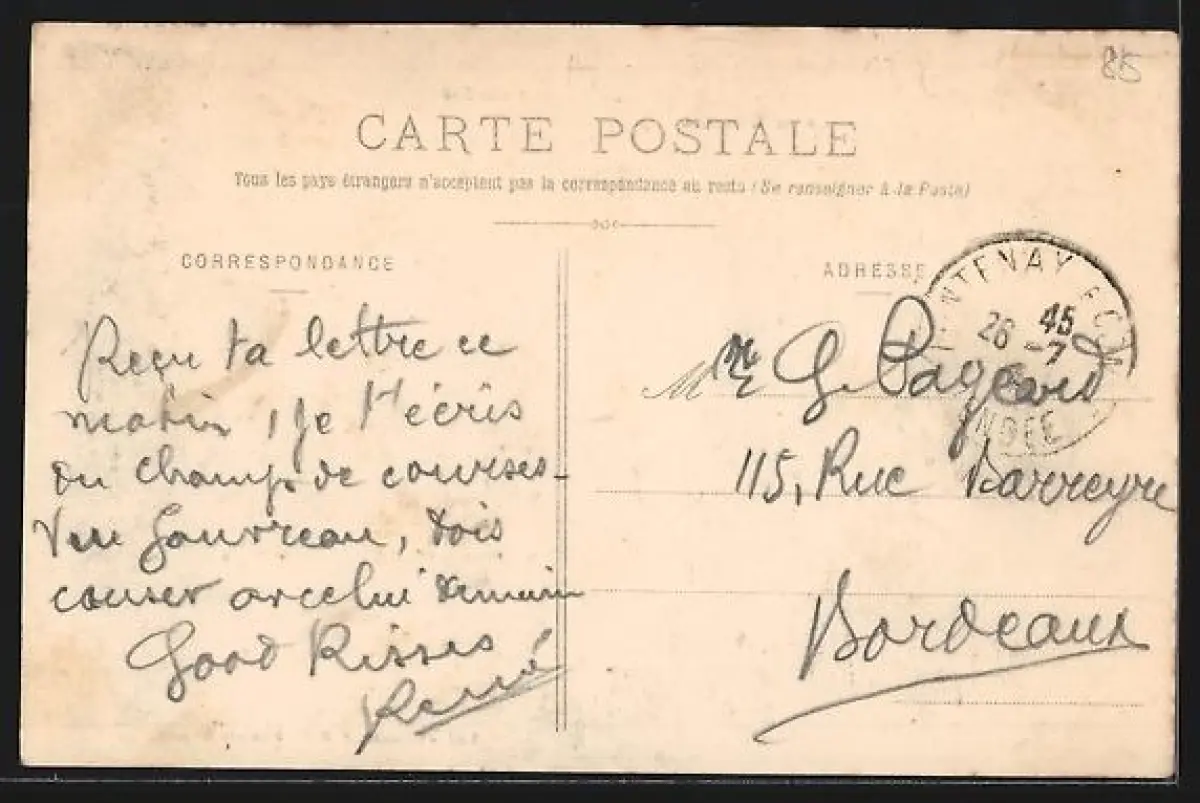 85
CARTE POSTALE
Tous les pays étrangers n'acceptent pas la correspondance au recto (Se renseigner à la Poste)
CORRESPONDANCE
Reçu ta lettre ce
matin, je t'écris
du champ de courses-
Vu Gouvreau, dois
causer avec lui demain
Good Kisses
René
ADRESSE
NTENAY LE C
26 -7 45
NDEE
Me G. Pageard
115, Rue Barreyre
Bordeaux